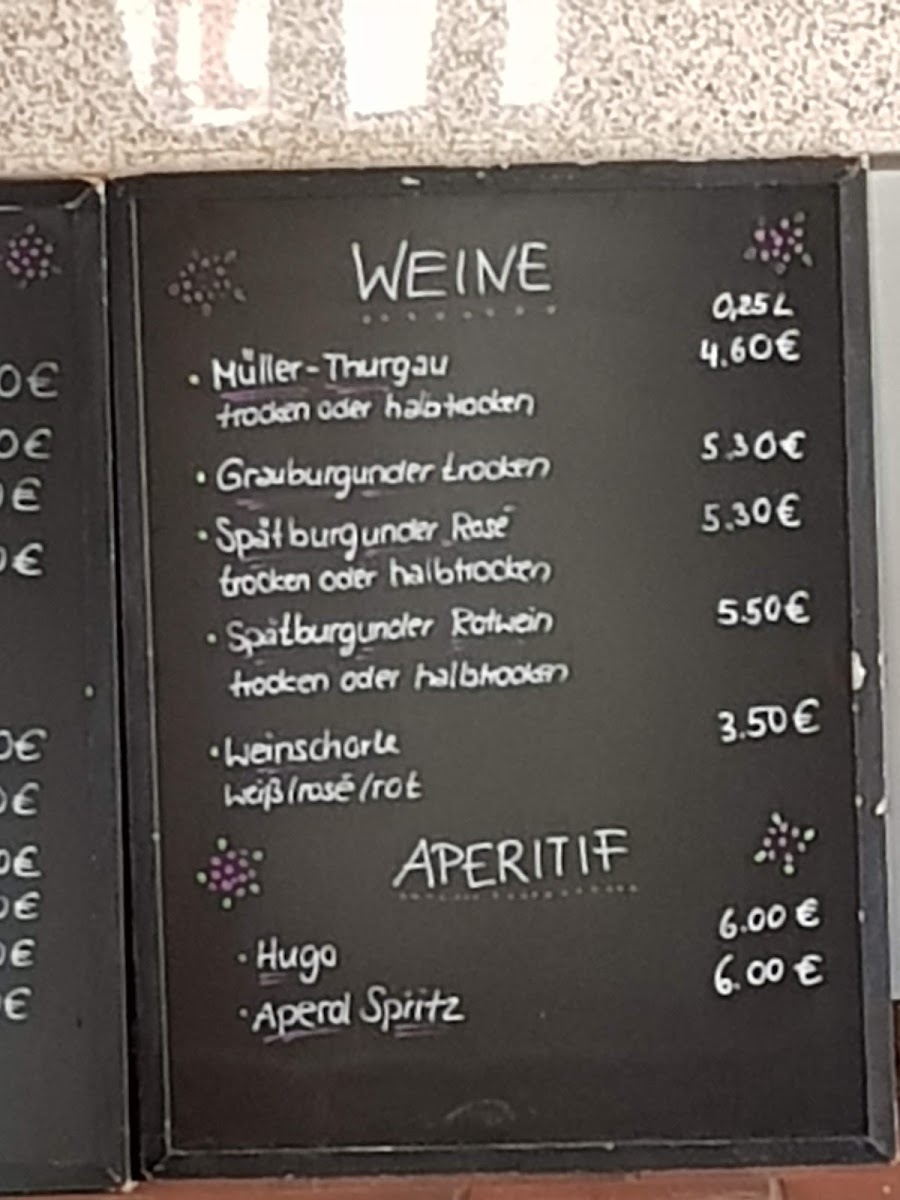 WEINE
0,25L
• Müller-Thurgau 4.60€
trocken oder halbtrocken
• Grauburgunder trocken 5.30€
• Spätburgunder Rosé 5.30€
trocken oder halbtrocken
• Spätburgunder Rotwein 5.50€
trocken oder halbtrocken
• Weinschorle 3.50€
weiß/rosé/rot
APERITIF
• Hugo 6.00€
• Aperol Spritz 6.00€
0€
0€
€
€
0€
€
0€
€
€
€